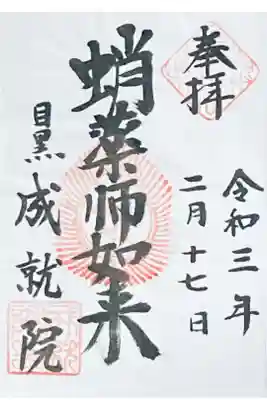 奉拝
令和三年
二月十七日
蛸薬師如来
目黒成就院